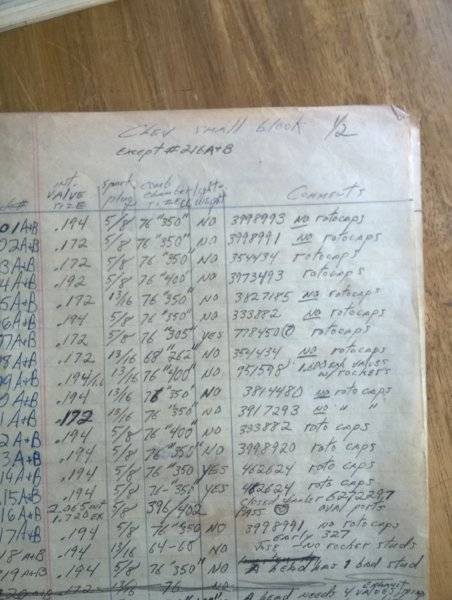 CHEV small block 1/2
except #216A+B
int. VALVE SIZE spark plug comb chamber size cc light-weight COMMENTS
01A+B .194 5/8 76 "350" NO 3998993 NO rotocaps
02A+B .172 5/8 76 "350" NO 3998991 NO rotocaps
3A+B .172 5/8 76 "350" NO 354434 rotocaps
4A+B .192 5/8 76 "400" NO 3973493 rotocaps
5A+B .172 13/16 76 "350" NO 3827185 NO rotocaps
6A+B .194 5/8 76 "350" NO 333882 NO rotocaps
7A+B .172 5/8 76 "305" YES 778450 rotocaps
8A+B .172 13/16 68 "262" NO 354434 NO rotocaps
9A+B .194/1.6 13/16 76 "400" NO 951598 VALVES w/rockers
A+B .194 13/16 76 "350" NO 3814480 NO roto caps
1A+B .172 13/16 76 "350" NO 3917293 NO " "
2A+B .194 5/8 76 "400" NO 333882 roto caps
3A+B .194 5/8 76 "350" NO 3998920 roto caps
14A+B .194 5/8 76 "350 YES 462624 roto caps
15A+B .194 5/8 76-"350 YES 462624 roto caps
16A+B 2.065 int 1.720 EX 5/8 396/402 closed chamber 6272297 oval ports
17A+B .194 5/8 76 "350 NO 3998991 no rotocaps
18 A+B .194 13/16 64-66 NO early 327 no rocker studs
19 A+B .194 5/8 76 "350" NO A head has 1 bad stud
.172 13/16 76 A head needs 4 exhaust valves